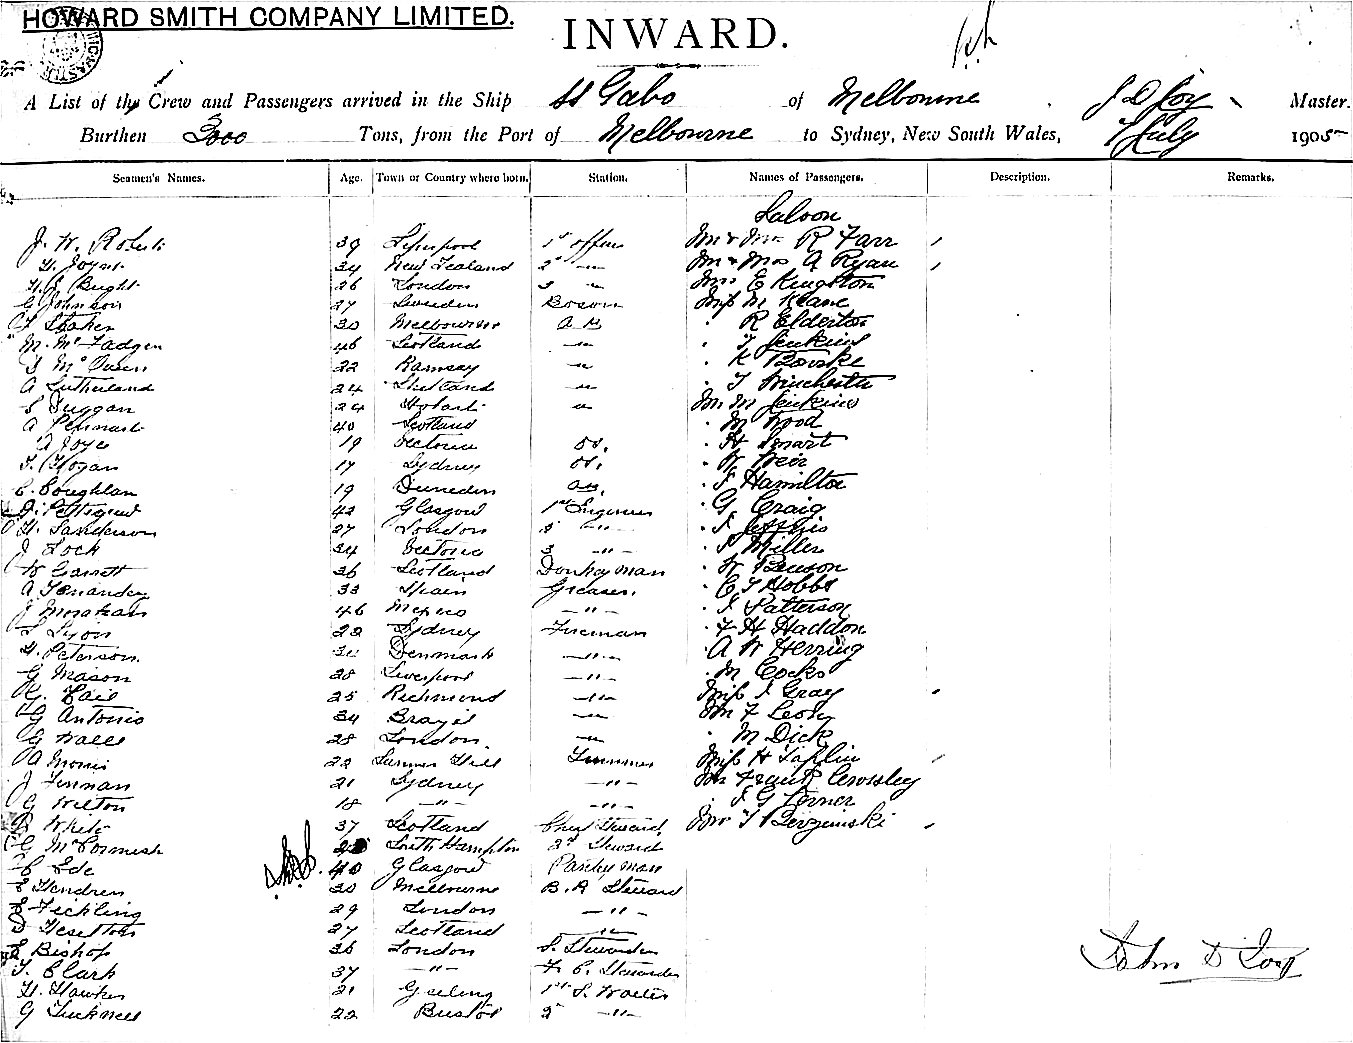 HOWARD SMITH COMPANY LIMITED.
INWARD.
A List of the Crew and Passengers arrived in the Ship SS Gabo of Melbourne J D Loy Master.
Burthen 3000 Tons, from the Port of Melbourne to Sydney, New South Wales, 7 July 1905
Seamen's Names. Age. Town or Country where born. Station. Names of Passengers. Description. Remarks.
Saloon
J. W. Roberts 39 Liverpool 1st officer Mr & Mrs R Farr
H. Joynt 34 New Zealand 2nd " Mr & Mrs A Ryan
H. J. Bught 26 London 3 " Mrs E Kingston
C Johnson 27 Sweden Boson Miss M Keane
30 Melbourne A B " R Elderton
M. McFadgen 46 Scotland " " Jenkins
22 Ramsay " " K
A Sutherland 24 Shetland " " T Winchester
S Duggan 24 Hobart " Mr M Jenkins
A 40 Scotland " M Wood
A Joyce 19 Victoria OS. " H Smart
T. Hogan 17 Sydney OS. " W Weir
C. Coughlan 19 Dunedin " J Hamilton
J. Pettigrew 42 Glasgow 1st Engineer " G Craig
H. Sanderson 27 London 2 " " J
J Lock 34 Victoria 3 " " J Miller
W Garrett 36 Scotland Donkeyman " W Benson
A Fernandez 33 Spain Greaser. " C J Hobbs
J 46 Mexico " " J Patterson
S Lyon 22 Sydney Fireman " F H Haddon
H. Peterson. Denmark " " A W Herring
G Mason 28 Liverpool " " M Cocks
G. 25 Richmond " Miss J Gray
G Antonio 34 Brazil " Mr F Leshy
G Wall 28 London. " " M Dick
A Morris 22 Summer Hill Trimmer Miss H Taplin
J Finman 21 Sydney " Mr Frank Crossley
G Wilton 18 " " " J G Turner
White 37 Scotland Chief Steward Mr T Berzinski
G McCormish South Hampton 2nd Steward
C Ede 40 Glasgow Pantryman
E Hendren 30 Melbourne B. R Steward
E Fickling 29 London "
Heselton 27 Scotland "
Bishop 36 London S. Stewardess
T. Clark 37 " F. C. Stewardess
H. Hawkes 21 Geelong 1st S. Waiter
G Tucknell 22 Bristol 2 "
John D Loy